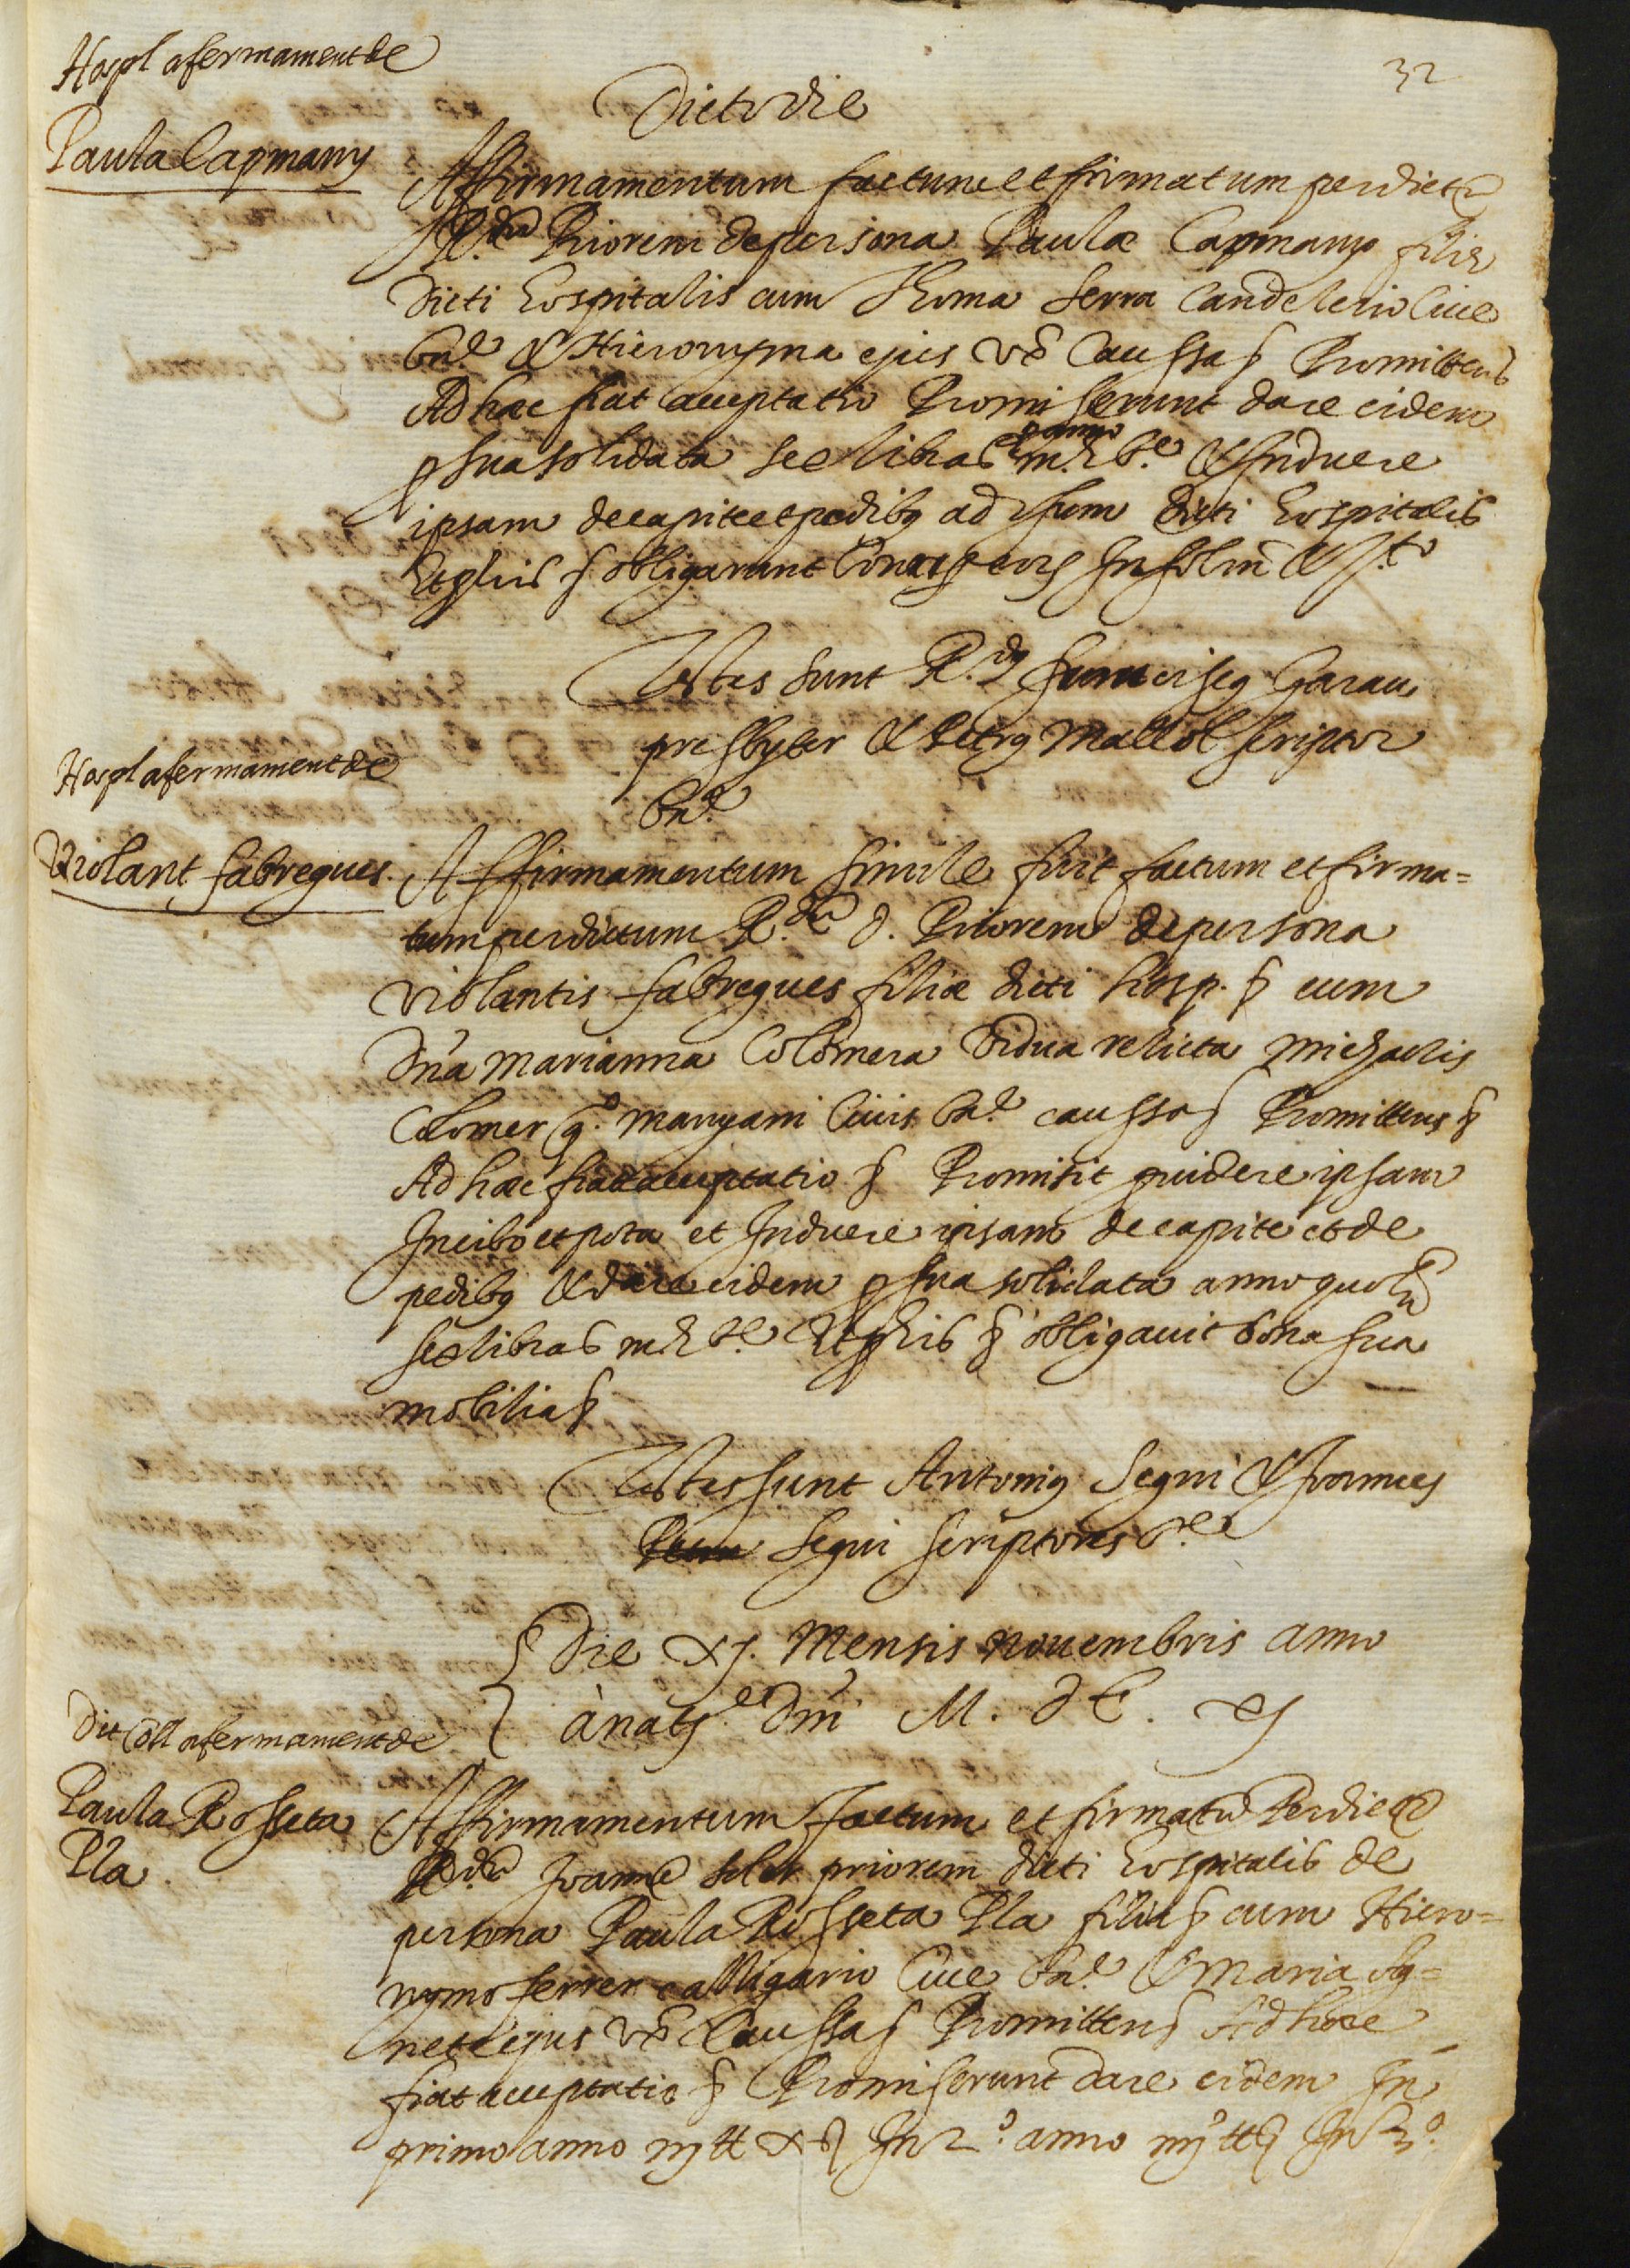 32
Hospl afermament de
Paula Capmany
Dicto die
Affirmamentum factum et firmatum per dictũ
R.dũ Priorem de persona Paulæ Capmany filiæ
dicti hospitalis cum Thoma Serra Candelerio Ciue
Bn.e & Hieronyma ejus vx̃ Caussa § Promittens
Ad hæc fiat acceptatio Promiserunt dare eidem
p sua solidata sex libras m.R b.e & Induere
anno
ipsam de capite et pedibꝰ ad usum dicti hospitalis
Et p his § obligarunt In solm̃ &
Testes sunt R.dꝰ Franciscꝰ Garau
presbyter & Petrꝰ Mallol scriptor
Bn.e
Hospl afermament de
Violant fabregues.
Affirmamentum simile fuit factum et firma=
tum per dictum R.dũ d. Priorem de persona
violantis fabregues filiæ dicti hosp. § cum
Dña Marianna Colomera Vidua relicta Michaelis
Colomer q.o mangani Ciuis Bn.e caussa § Promittens §
Ad hæc fiat acceptatio § Promisit puidere ipsam
In cibo et potu et Induere ipsam de capite et de
pedibꝰ & dare eidem p sua solidata anno quol
sex libras m R b.e Et p his § obligauit bona sua
mobilia §
Testes sunt Antoniꝰ Segui & Joannes
Segui scriptores B.e
Die xj. Mensis nouembris anno
à natte Dñi M. dC. xj
Dit Coll afermament de
Paula Rosseta
Pla
Affirmamentum factum et firmatũ Per dictũ
R.dũ Joannẽ Soler priorem dicti hospitalis de
persona Paula Rosseta Pla filia § cum Hiero=
nymo ferrer calligario Ciue Bn.e & Maria Ag=
nete ejus vx̃ Caussa § Promittens Ad hæc
fiat acceptatio § Promiserunt dare eidem In
primo anno iiij ℔ x ß In 2.o anno iiij ℔ § In 3.o